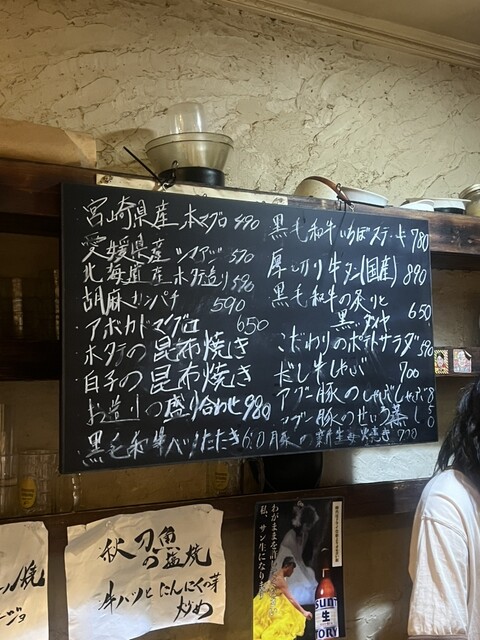 宮崎県産 本マグロ 590
愛媛県産 シマアジ 570
北海道産 ホタテ造り 590
胡麻カンパチ 590
アボカドマグロ 650
ホタテの昆布焼き
白子の昆布焼き
お造りの盛り合わせ 980
黒毛和牛
黒毛和牛いちぼステーキ 780
厚切り牛タン(国産) 890
黒毛和牛の炙りと 650
こだわりのポテトサラダ 590
だし牛しゃぶ 700
アグー豚のしゃぶしゃぶ
アグー豚のせいろ蒸し
豚の
秋刀魚の塩焼
牛ハツとにんにくの芽
炒め
わがままを許し
私、サン生になりま
SUNTORY
生